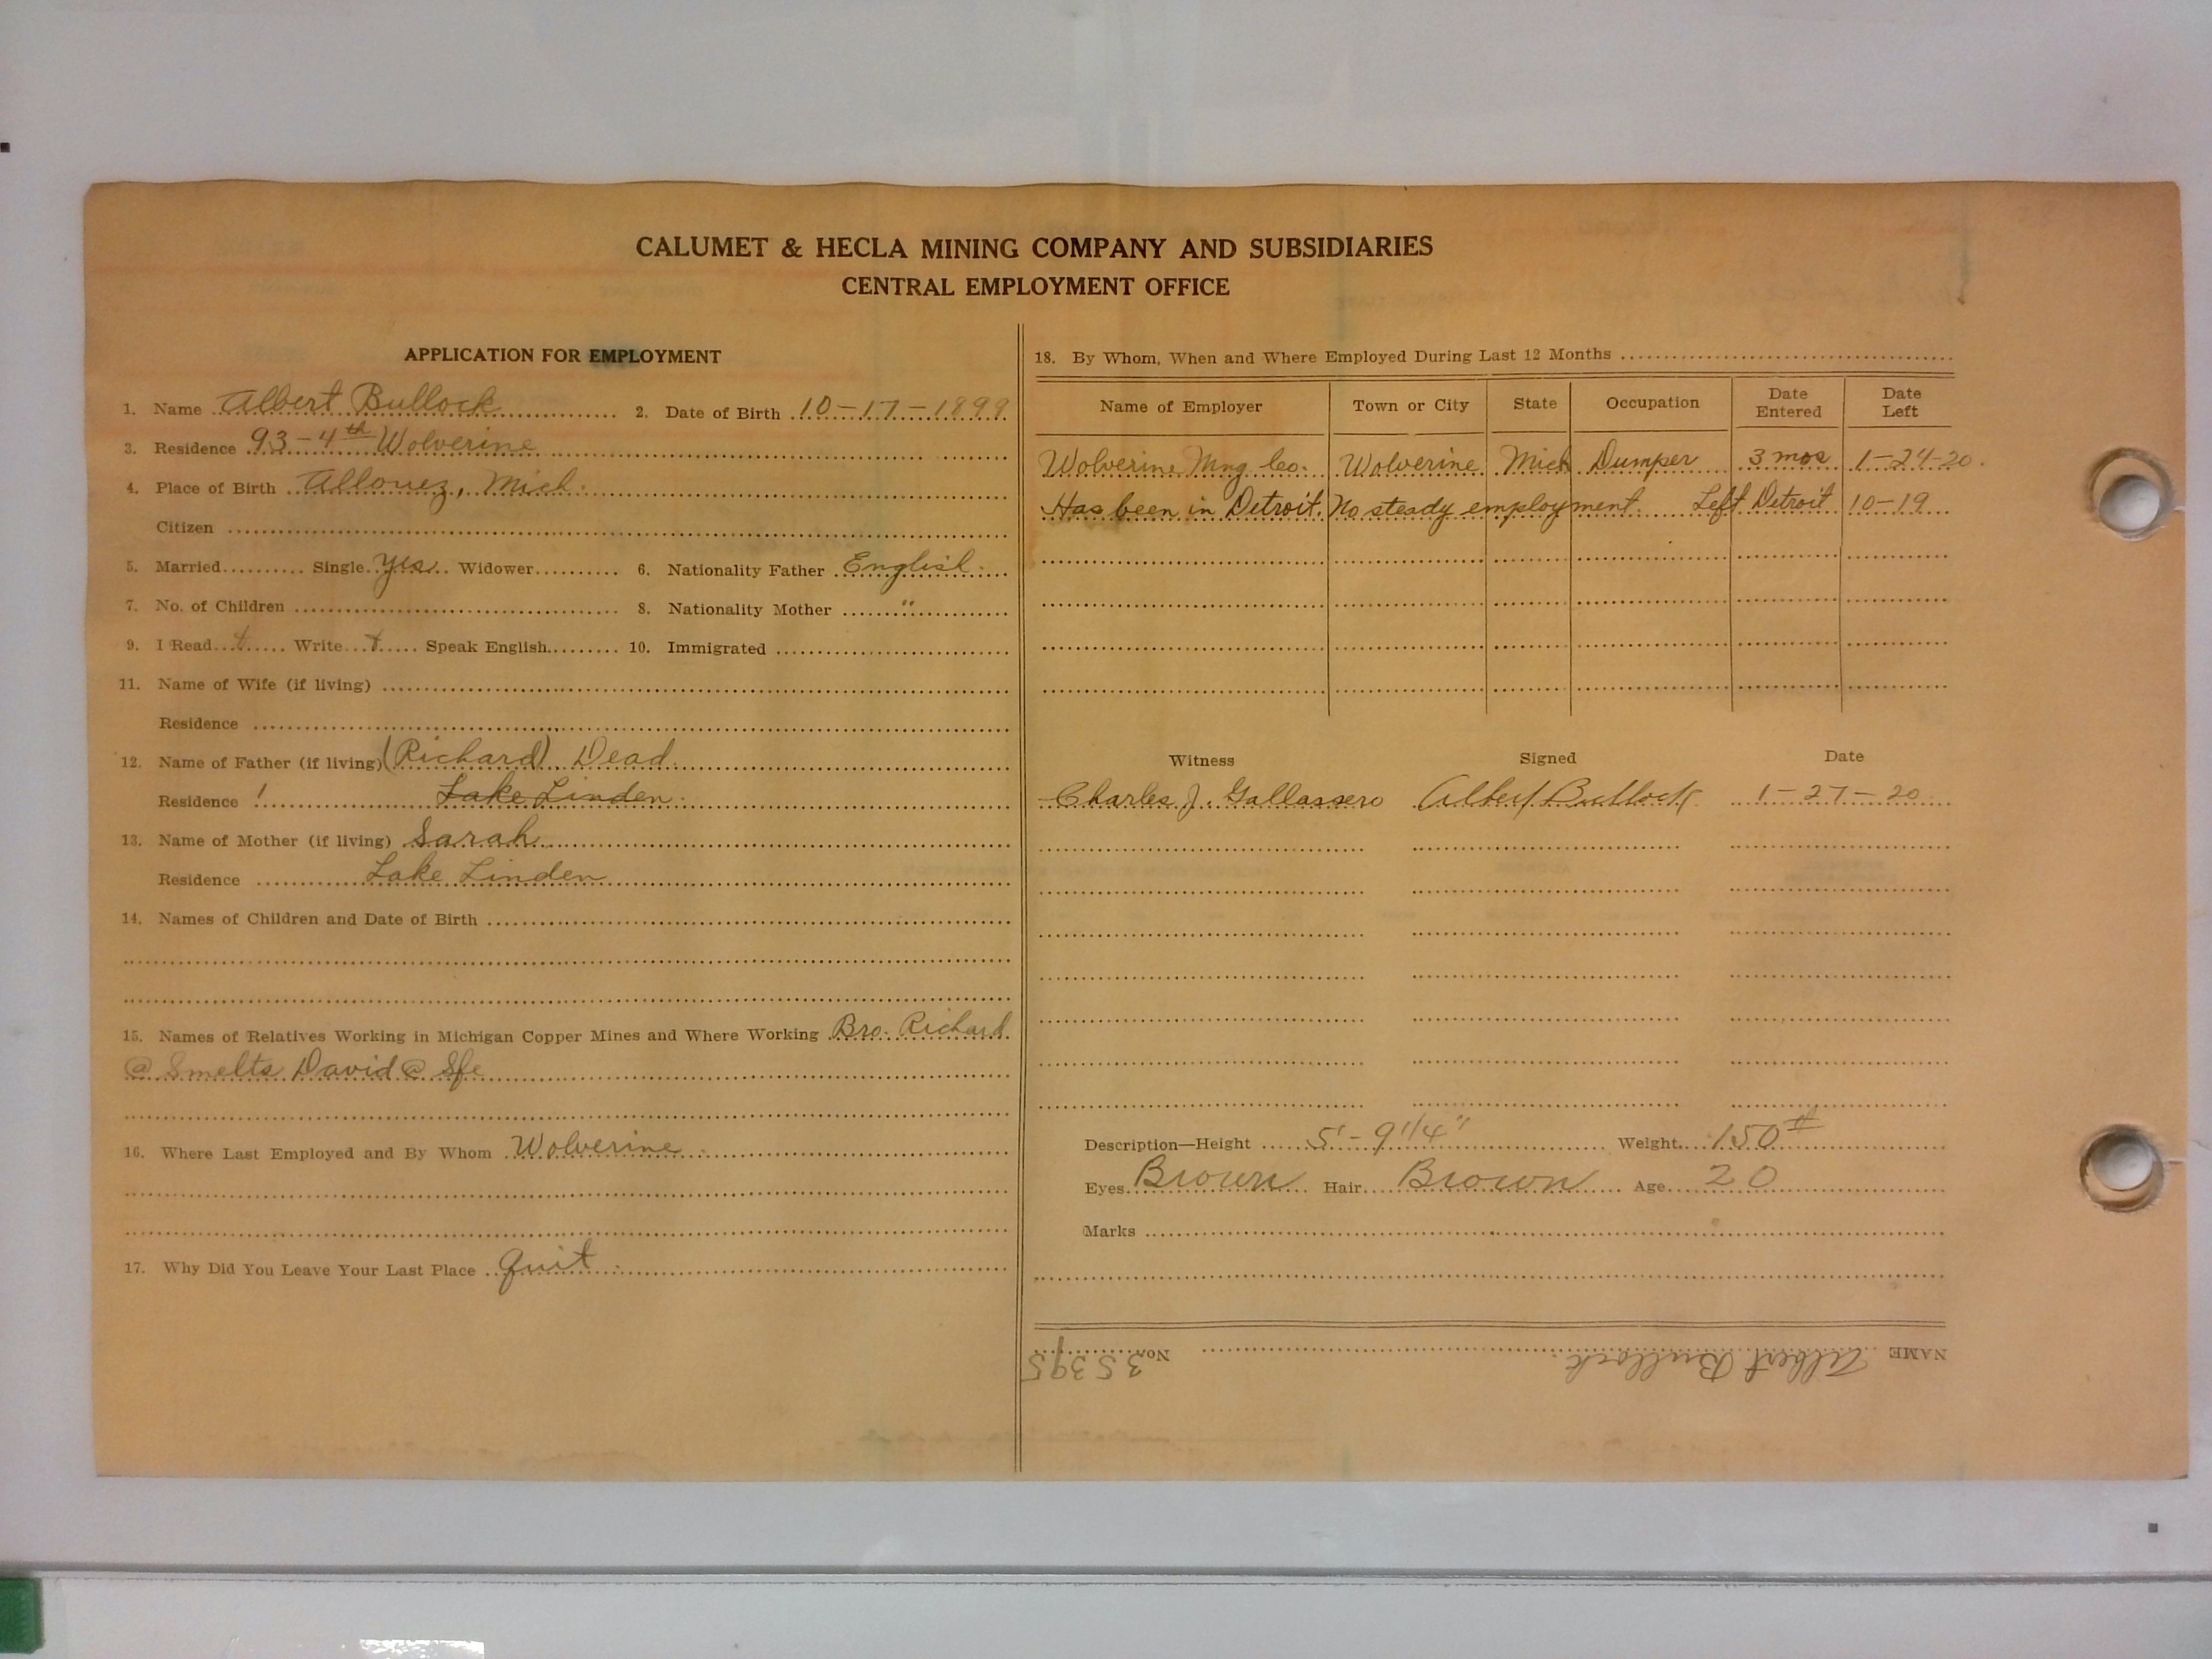 CALUMET & HECLA MINING COMPANY AND SUBSIDIARIES
CENTRAL EMPLOYMENT OFFICE
APPLICATION FOR EMPLOYMENT
1. Name Albert Bullock 2. Date of Birth 10-17-1899
3. Residence 93-4th Wolverine
4. Place of Birth Allouez, Mich.
Citizen
5. Married Single Yes Widower 6. Nationality Father English
7. No. of Children 8. Nationality Mother "
9. I Read Write Speak English 10. Immigrated
11. Name of Wife (if living)
Residence
12. Name of Father (if living) (Richard) Dead
Residence Lake Linden
13. Name of Mother (if living) Sarah
Residence Lake Linden
14. Names of Children and Date of Birth
15. Names of Relatives Working in Michigan Copper Mines and Where Working Bro. Richard
@ Smelts David @
16. Where Last Employed and By Whom Wolverine
17. Why Did You Leave Your Last Place Quit
18. By Whom, When and Where Employed During Last 12 Months
Name of Employer Town or City State Occupation Date Entered Date Left
Wolverine Mng Co. Wolverine Mich Dumper 3 mos 1-24-20.
Has been in Detroit. No steady employment. Left Detroit 10-19
Witness Signed Date
Charles J. Gallassero Albert Bullock 1-27-20
Description—Height 5'-9 1/4" Weight 150#
Eyes Brown Hair Brown Age 20
Marks
NAME Albert Bullock No. 35395